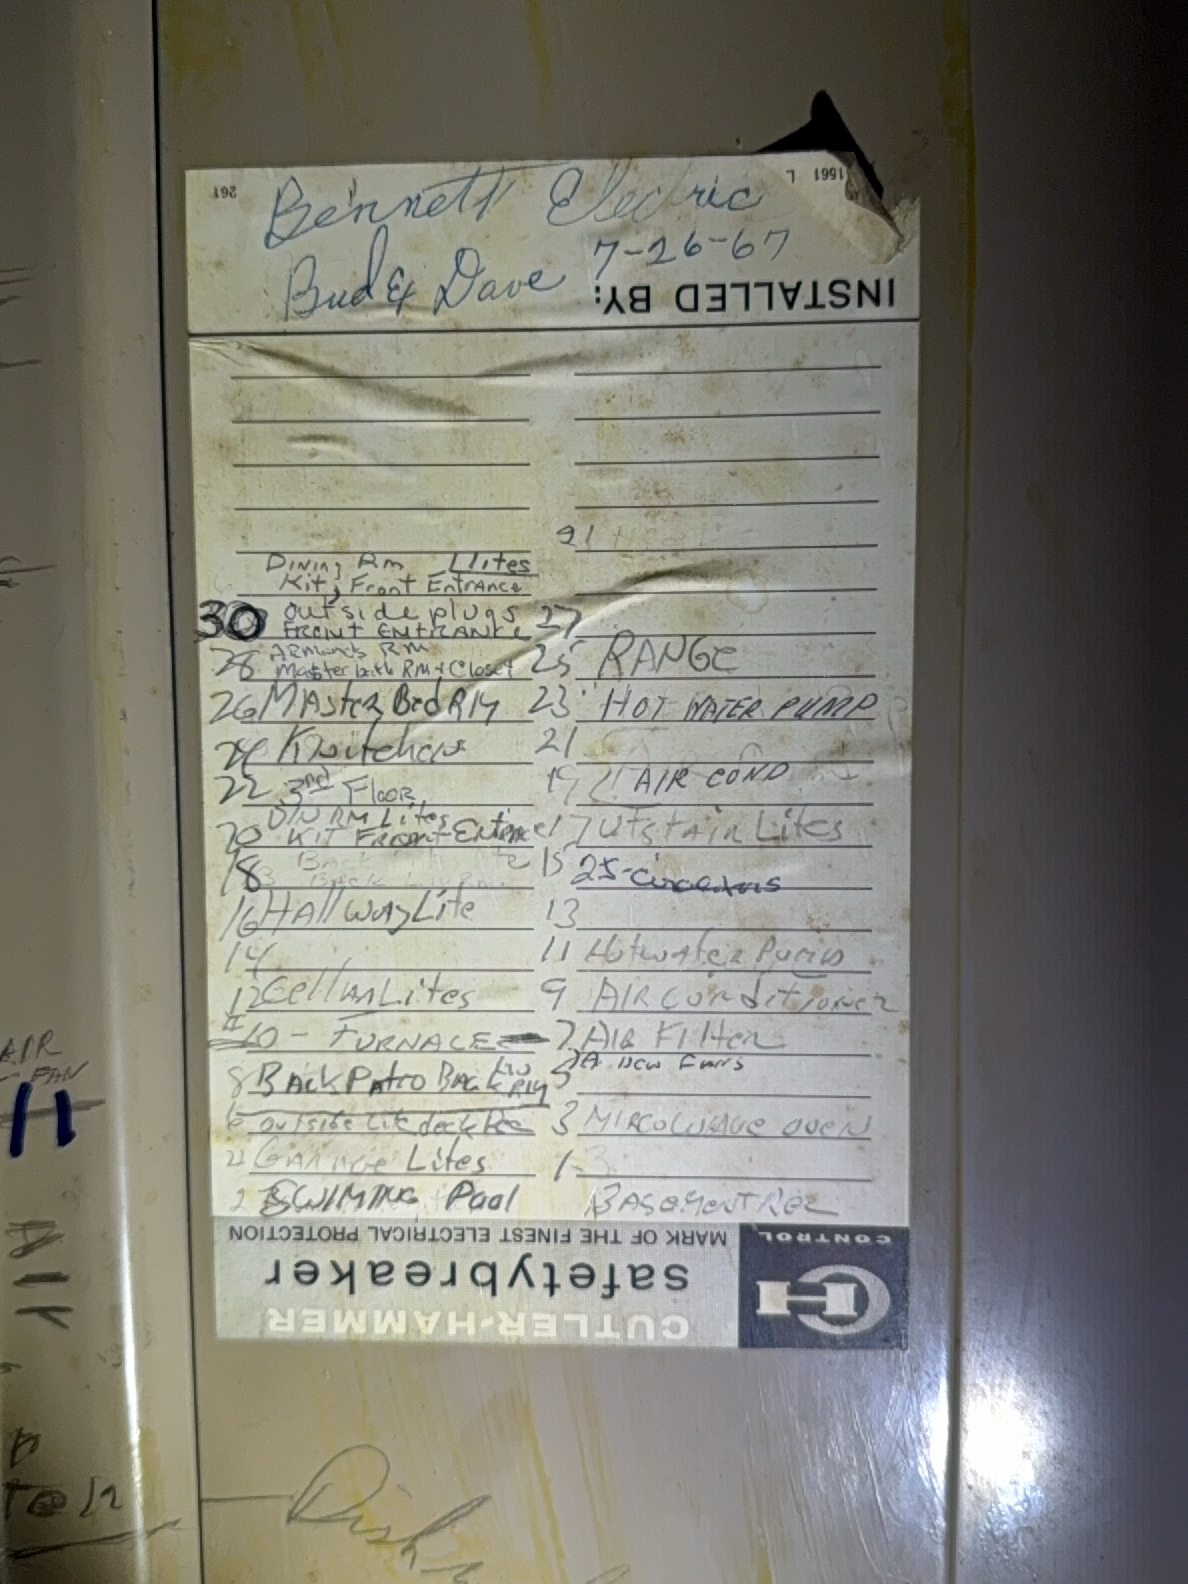 261
L 1561
Bennett Electric
Bud & Dave 7-26-67
INSTALLED BY:
21
Dining Rm Llites
Kit, Front Entrance
30 outside plugs
FRONT ENTRANCE
27
28 Armands Rm
Master bath RM & Closet
25 RANGE
26 Master Bed Rm
23 HOT WATER PUMP
24
21
22 3rd Floor
19 AIR COND
20 DIN RM Lites
KIT Front Entrance
17 Utstair Lites
18 Back
15 25-
16 Hallway Lite
13
14
11 Hotwater Pump
12 Cellar Lites
9 AIR Conditioner
#10 - FURNACE
7 Air Filter
8 Back Patio Back Rm
5 New Furs
6 outside Lite deck Rec
3 MIRCOWAVE OVEN
4 Garage Lites
1-3
2 SWIMING Pool
BASEMENT Rec
MARK OF THE FINEST ELECTRICAL PROTECTION
safetybreaker
CUTLER-HAMMER
CH
CONTROL
AIR
FAN
11
Dish